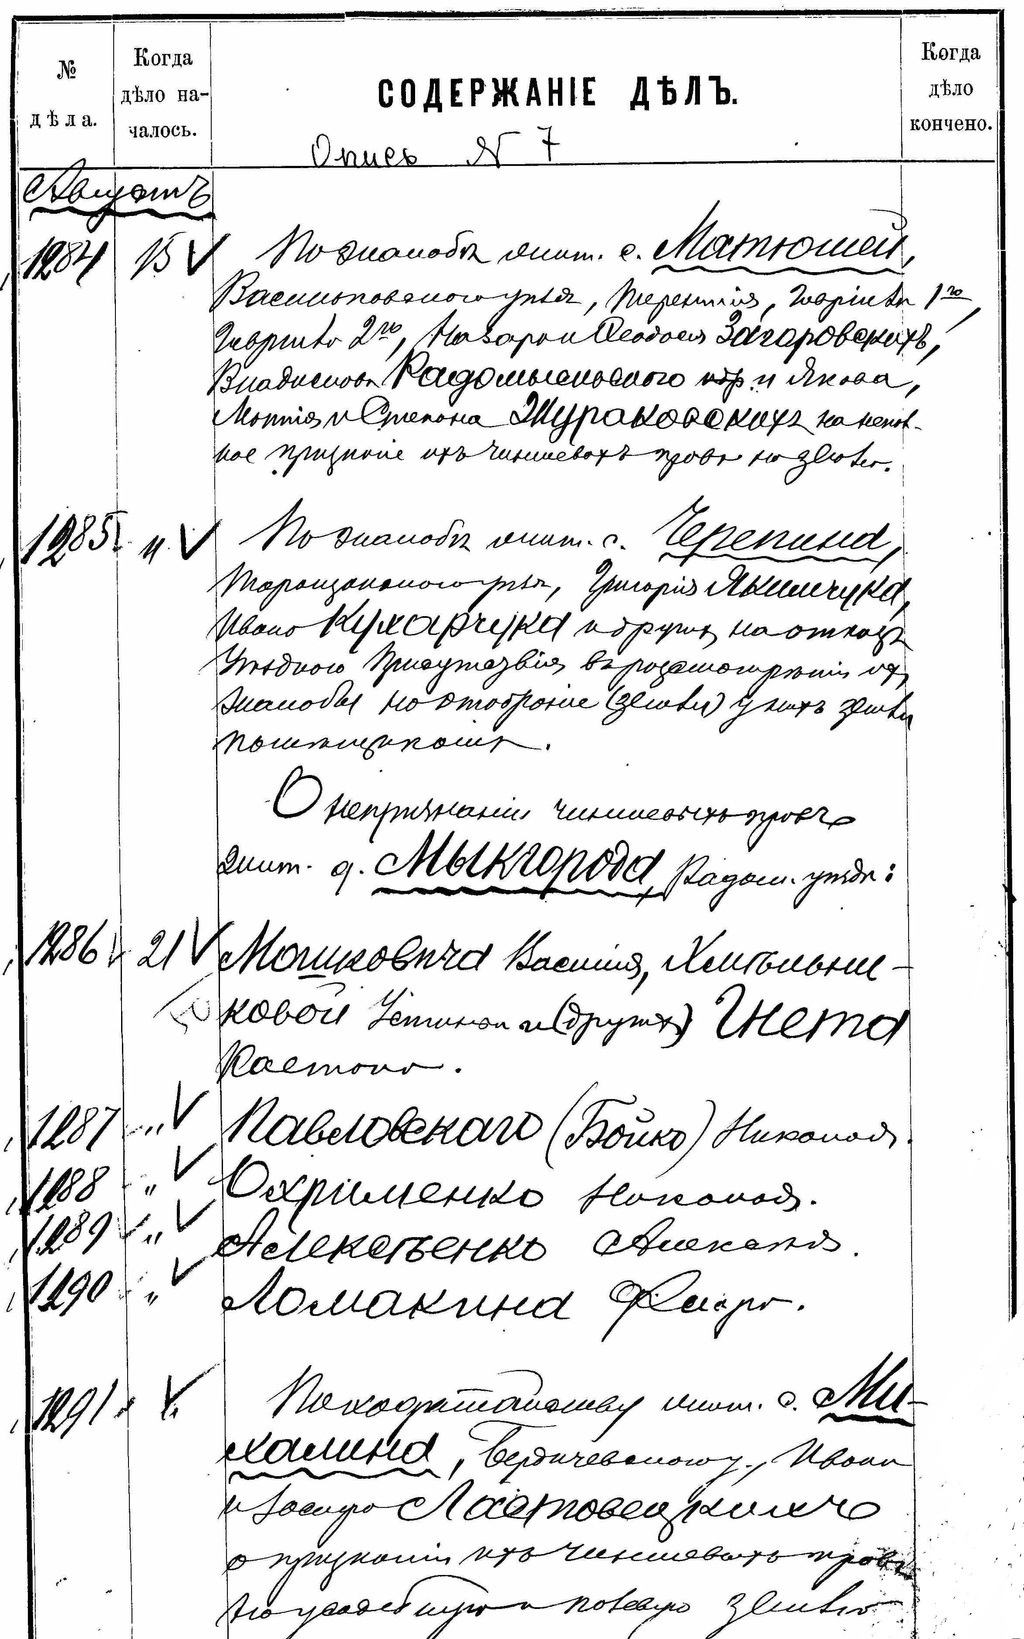 № дѣла.
Когда дѣло началось.
СОДЕРЖАНІЕ ДѢЛЪ.
Когда дѣло кончено.
Опись N 7
Августъ
1284 15 V По жалобѣ жит. с. Матюшей,
Васильковскаго уѣзда, Терентія, 1го,
2го, Назара и Ѳеодосія Загаровскихъ,
Владислава Радомысльскаго и Якова,
Матвія и Степана Жураковскихъ на
признаніе ихъ чиншевыхъ правъ на землю.
1285 11 V По жалобѣ жит. с. Черепина,
Таращанскаго уѣзда, Григорія Якимчука,
Ивана Кухарчука и другихъ на отказъ
Уѣзднаго Присутствія въ разсмотрѣніи ихъ
жалобы на отобраніе (земли) у нихъ земли
помѣщикомъ.
О непризнаніи чиншевыхъ правъ
жит. д. Мыкгорода, Радом. уѣзда:
1286 21 V Мошковича Василія, Хмѣльни-
ковой Устиніи и (другихъ) Гнета
Каетана.
1287 „ V Павловскаго (Бойко) Николая.
1288 „ V Охрименко Николая.
1289 „ V Алексѣенко Алексѣя.
1290 „ V Ломакина Ѳедора.
1291 V По ходатайству жит. с. Ми-
халина, Бердичевскаго у., Ивана
и Ластовецкихъ
о признаніи ихъ чиншевыхъ правъ
на усадебную и полевую землю